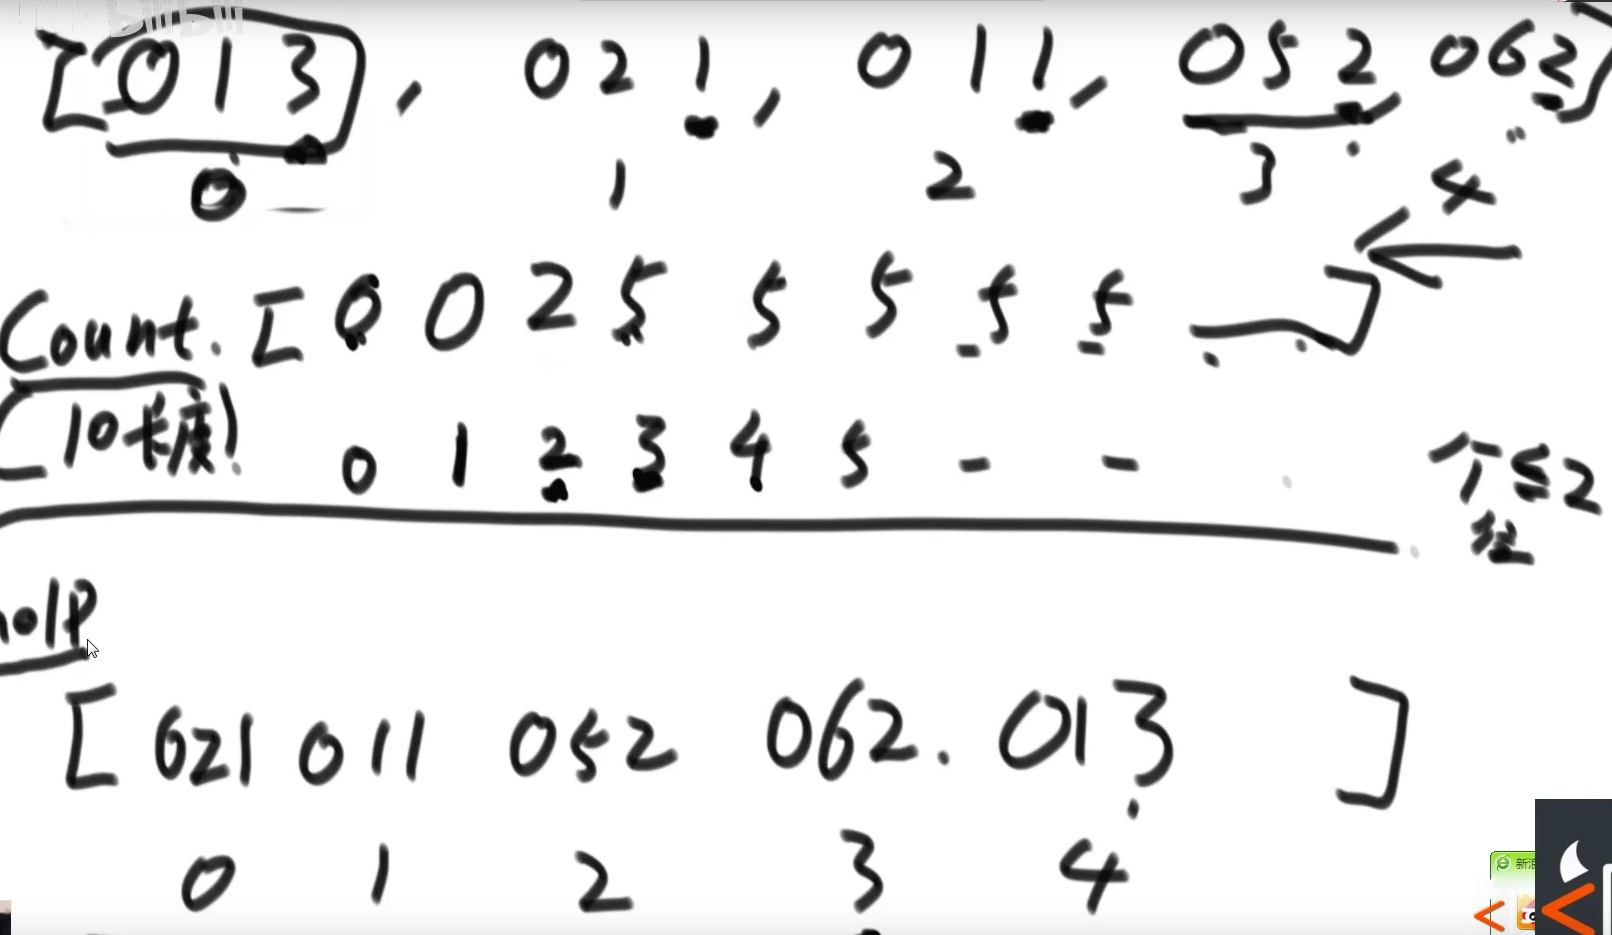 bilibili
[013, 021, 011, 052, 062]
0 1 2 3 4
Count. [0 0 2 5 5 5 5 5 ]
(10长度)
0 1 2 3 4 5 - -
个 ≤2
help
[021 011 052 062. 013 ]
0 1 2 3 4
新浪